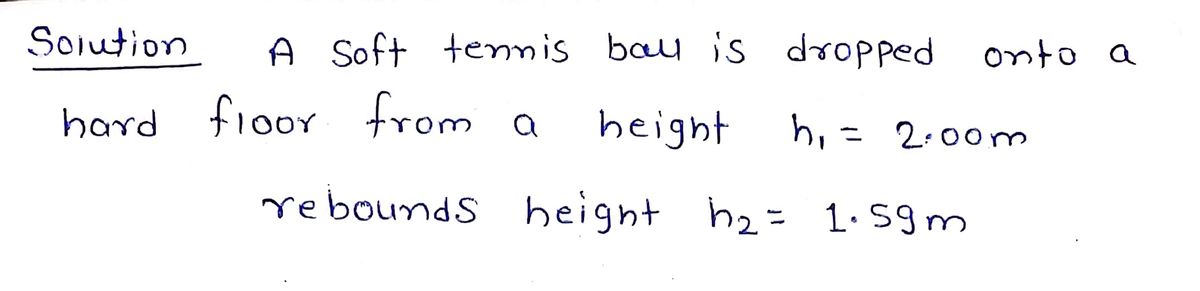 Solution A Soft tennis ball is dropped onto a
hard floor from a height h₁ = 2.00m
rebounds height h₂ = 1.59m